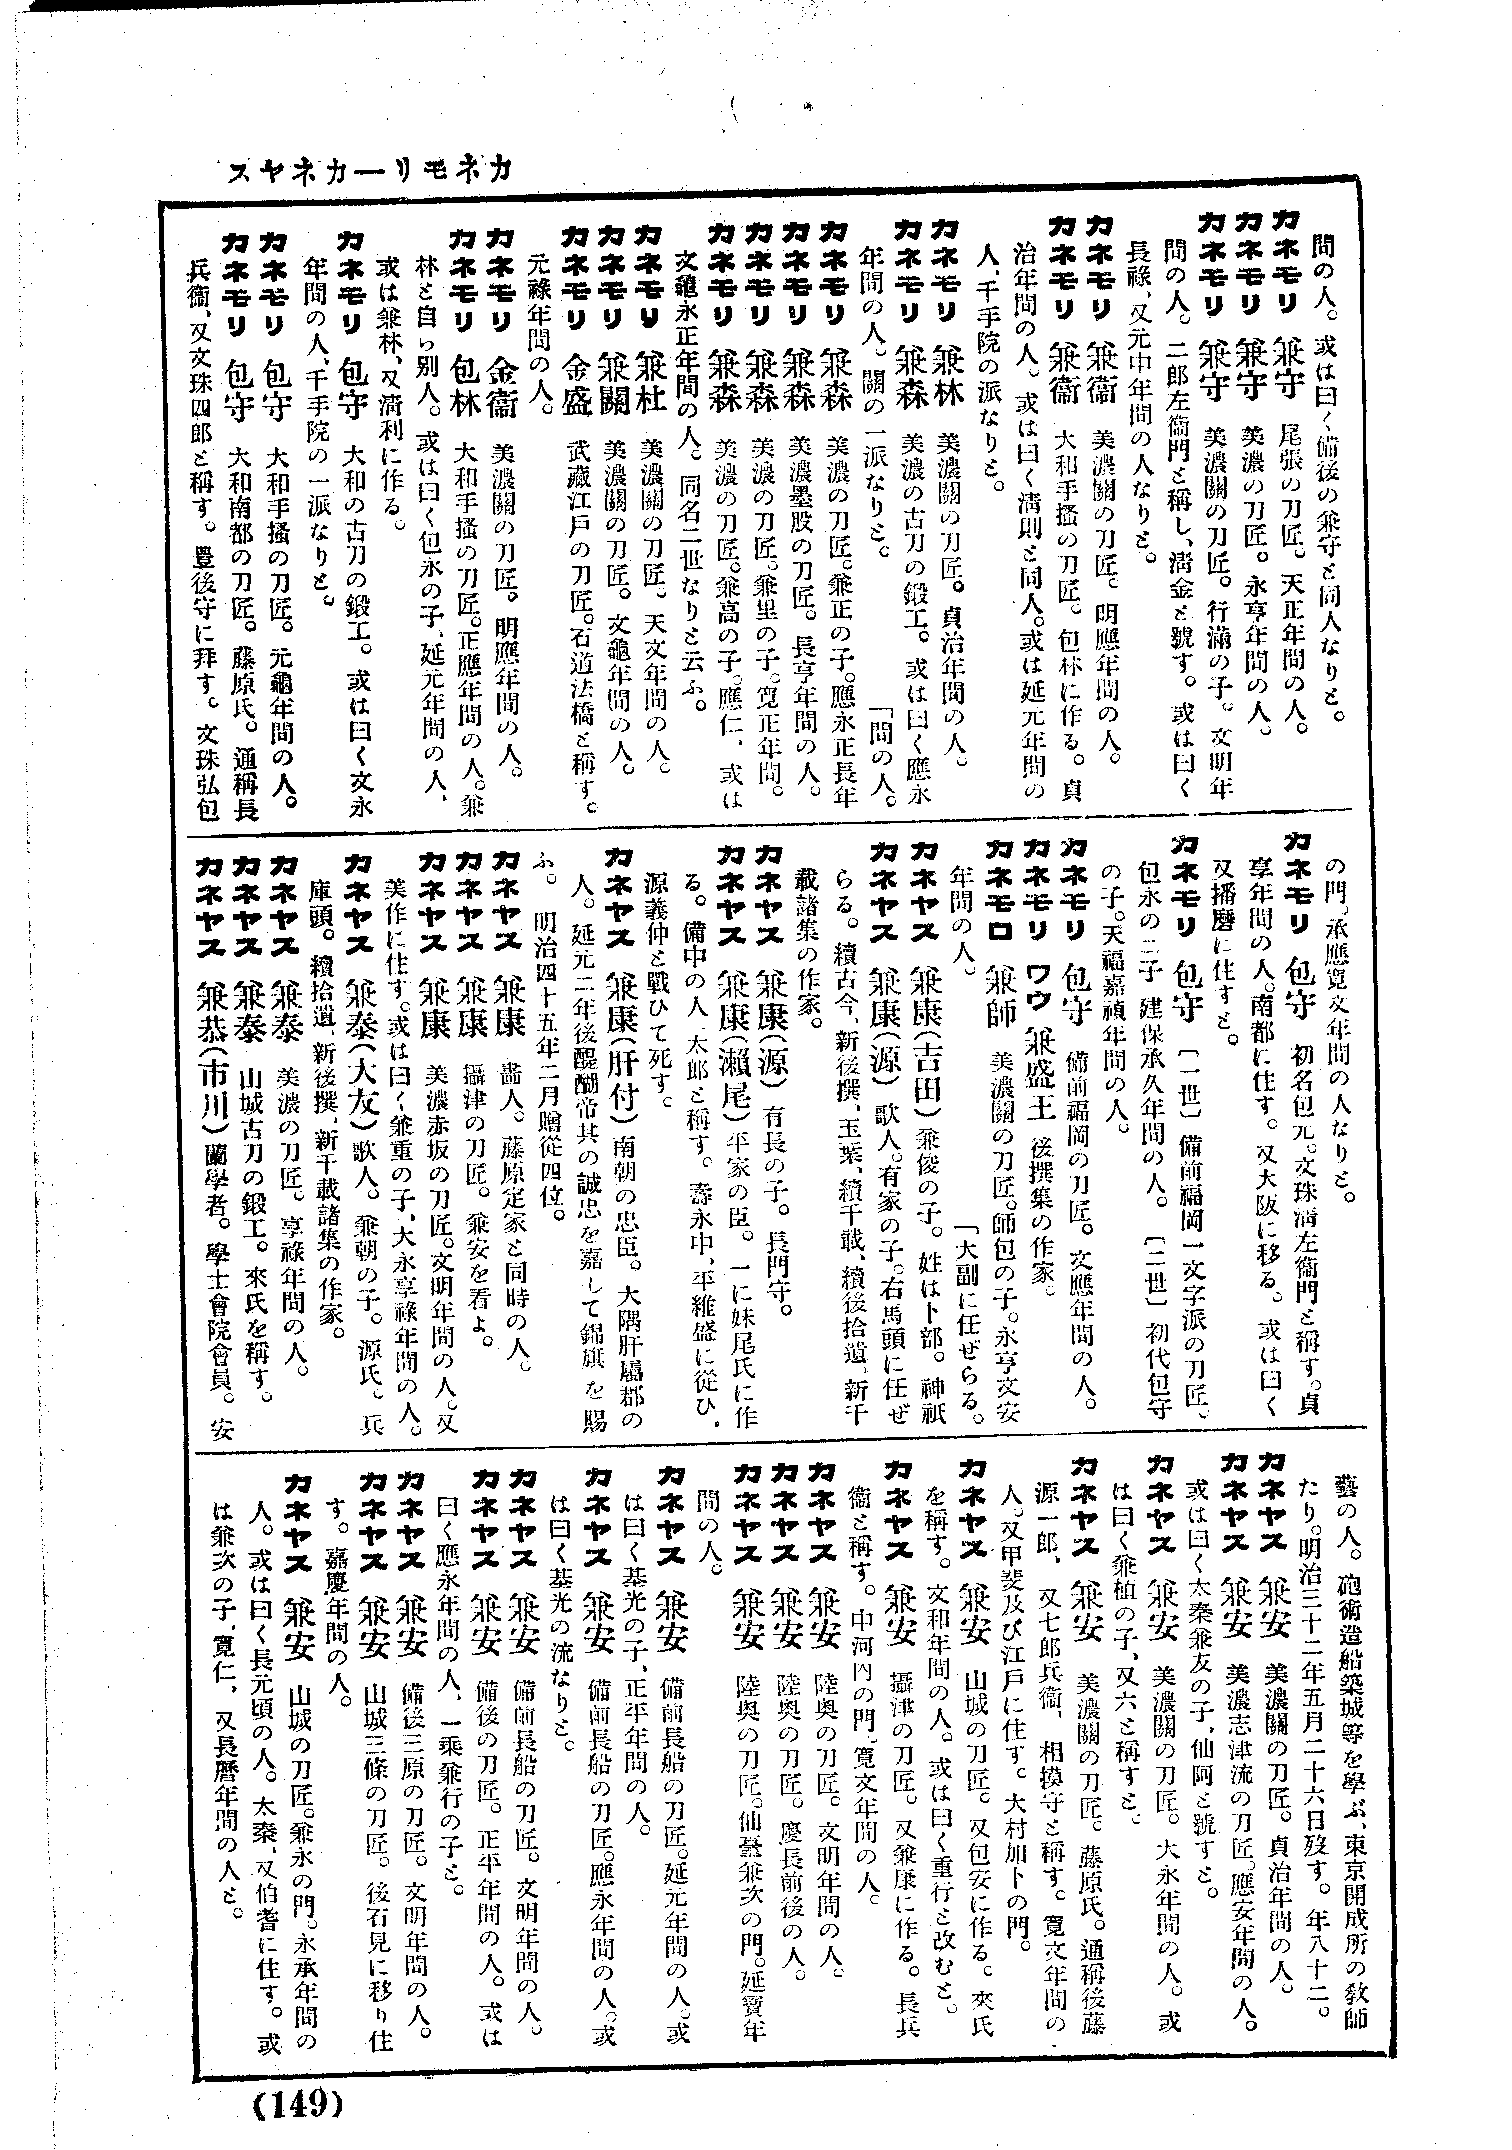 カネモリ―カネヤス
間の人。或は曰く備後の兼守と同人なりと。
カネモリ 兼守 尾張の刀匠。天正年間の人。
カネモリ 兼守 美濃の刀匠。永享年間の人。
カネモリ 兼守 美濃關の刀匠。行滿の子。文明年
間の人。二郎左衞門と稱し、淸金と號す。或は曰く
長祿、又元中年間の人なりと。
カネモリ 兼衞 美濃關の刀匠。明應年間の人。
カネモリ 兼衞 大和手搔の刀匠。包林に作る。貞
治年間の人。或は曰く淸則と同人。或は延元年間の
人、千手院の派なりと。
カネモリ 兼林 美濃關の刀匠。貞治年間の人。
カネモリ 兼森 美濃の古刀の鍛工。或は曰く應永
年間の人。關の一派なりと。 「間の人。
カネモリ 兼森 美濃の刀匠。兼正の子。應永正長年
カネモリ 兼森 美濃墨股の刀匠。長享年間の人。
カネモリ 兼森 美濃の刀匠。兼里の子。寬正年間。
カネモリ 兼森 美濃の刀匠。兼高の子。應仁、或は
文龜永正年間の人。同名二世なりと云ふ。
カネモリ 兼杜 美濃關の刀匠。天文年間の人。
カネモリ 兼關 美濃關の刀匠。文龜年間の人。
カネモリ 金盛 武藏江戶の刀匠。石道法橋と稱す。
元祿年間の人。
カネモリ 金衞 美濃關の刀匠。明應年間の人。
カネモリ 包林 大和手搔の刀匠。正應年間の人。兼
林と自ら別人。或は曰く包永の子、延元年間の人、
或は兼林、又淸利に作る。
カネモリ 包守 大和の古刀の鍛工。或は曰く文永
年間の人、千手院の一派なりと。
カネモリ 包守 大和手搔の刀匠。元龜年間の人。
カネモリ 包守 大和南都の刀匠。藤原氏。通稱長
兵衞、又文珠四郎と稱す。豊後守に拜す。文珠弘包
の門、承應寬文年間の人なりと。
カネモリ 包守 初名包元。文珠淸左衞門と稱す。貞
享年間の人。南都に住す。又大阪に移る。或は曰く
又播磨に住すと。
カネモリ 包守 〔一世〕備前福岡一文字派の刀匠。
包永の二子 建保承久年間の人。〔二世〕初代包守
の子。天福嘉禎年間の人。
カネモリ 包守 備前福岡の刀匠。文應年間の人。
カネモリ ワウ 兼盛王 後撰集の作家。
カネモロ 兼師 美濃關の刀匠。師包の子。永亨文安
年間の人。 「大副に任ぜらる。
カネヤス 兼康(吉田) 兼俊の子。姓は卜部。神祇
カネヤス 兼康(源) 歌人。有家の子。右馬頭に任ぜ
らる。續古今、新後撰、玉葉、續千載、續後拾遺、新千
載諸集の作家。
カネヤス 兼康(源) 有長の子。長門守。
カネヤス 兼康(瀨尾) 平家の臣。一に妹尾氏に作
る。備中の人 太郎と稱す。壽永中、平維盛に從ひ、
源義仲と戰ひて死す。
カネヤス 兼康(肝付) 南朝の忠臣。大隅肝屬郡の
人。延元二年後醍醐帝其の誠忠を嘉して錦旗を賜
ふ。明治四十五年二月贈從四位。
カネヤス 兼康 畵人。藤原定家と同時の人。
カネヤス 兼康 攝津の刀匠。兼安を看よ。
カネヤス 兼康 美濃赤坂の刀匠。文明年間の人。又
美作に住す。或は曰く兼重の子、大永享祿年間の人。
カネヤス 兼泰(大友) 歌人。兼朝の子。源氏、兵
庫頭。續拾遺、新後撰、新千載諸集の作家。
カネヤス 兼泰 美濃の刀匠。享祿年間の人。
カネヤス 兼泰 山城古刀の鍛工。來氏を稱す。
カネヤス 兼恭(市川) 蘭學者。學士會院會員。安
藝の人。砲術造船築城等を學ぶ、東京開成所の敎師
たり。明治三十二年五月二十六日歿す。年八十二。
カネヤス 兼安 美濃關の刀匠。貞治年間の人。
カネヤス 兼安 美濃志津流の刀匠。應安年間の人。
或は曰く太秦兼友の子、仙阿と號すと。
カネヤス 兼安 美濃關の刀匠。大永年間の人。或
は曰く兼植の子、又六と稱すと。
カネヤス 兼安 美濃關の刀匠。藤原氏。通稱後藤
源一郎、又七郎兵衞、相摸守と稱す。寬文年間の
人。又甲斐及び江戶に住す。大村加卜の門。
カネヤス 兼安 山城の刀匠。又包安に作る。來氏
を稱す。文和年間の人。或は曰く重行と改むと。
カネヤス 兼安 攝津の刀匠。又兼康に作る。長兵
衞と稱す。中河內の門。寬文年間の人。
カネヤス 兼安 陸奧の刀匠。文明年間の人。
カネヤス 兼安 陸奧の刀匠。慶長前後の人。
カネヤス 兼安 陸奧の刀匠。仙臺兼次の門。延寶年
間の人。
カネヤス 兼安 備前長船の刀匠。延元年間の人。或
は曰く基光の子、正平年間の人。
カネヤス 兼安 備前長船の刀匠。應永年間の人。或
は曰く基光の流なりと。
カネヤス 兼安 備前長船の刀匠。文明年間の人。
カネヤス 兼安 備後の刀匠。正平年間の人。或は
曰く應永年間の人、一乘兼行の子と。
カネヤス 兼安 備後三原の刀匠。文明年間の人。
カネヤス 兼安 山城三條の刀匠。後石見に移り住
す。嘉慶年間の人。
カネヤス 兼安 山城の刀匠。兼永の門。永承年間の
人。或は曰く長元頃の人。太秦、又伯耆に住す。或
は兼次の子、寬仁、又長曆年間の人と。
(149)